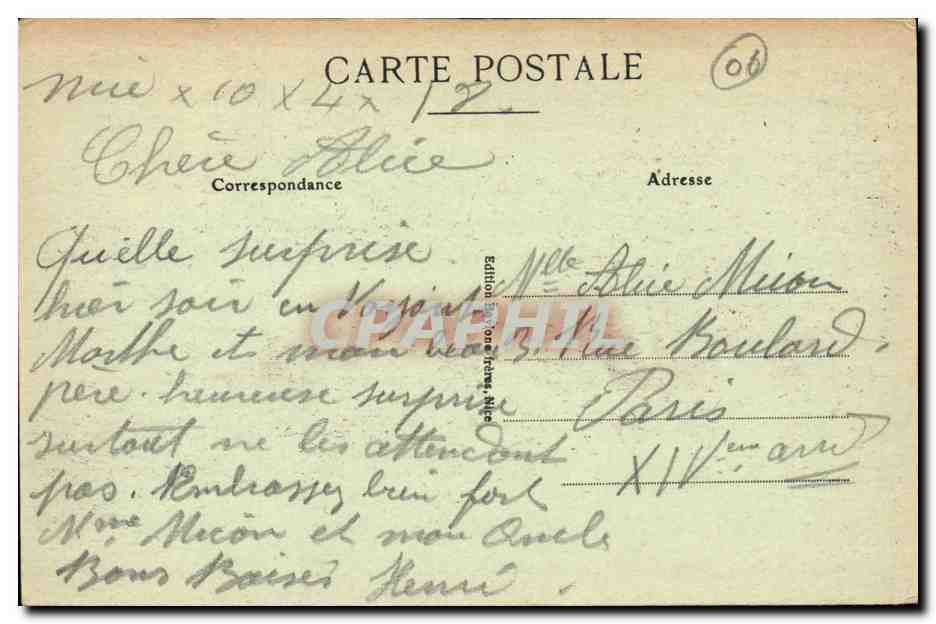 CARTE POSTALE
06
Nice x 10 x 4 x 12.
Chère Alice
Correspondance
Adresse
Quelle surprise
hier soir en voyant
Marthe et mon beau
père. heureuse surprise
surtout ne les attendant
pas. Embrassez bien fort
Mme Micon et mon Oncle
Bons Baisers Henri.
Edition frères, Nice
Mlle Alice Micon
3. Rue Boulard.
Paris
XIVème arrd
CPAPHIL